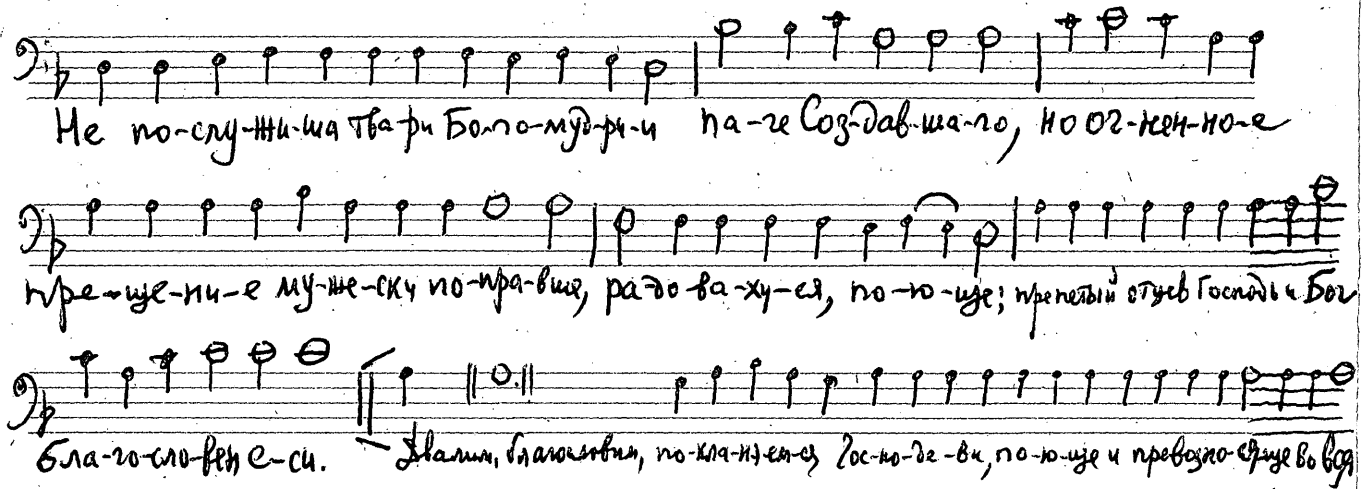 Не по-слу-жи-ша тва-ри Бо-го-муд-ри-и па-че Соз-дав-ша-го, но ог-нен-но-е
пре-ще-ни-е му-же-ски по-прав-ше, ра-до-ва-ху-ся, по-ю-ще; препетый отцев Господь и Бог
бла-го-сло-вен е-си. Хвалим, благословим, по-кла-ня-ем-ся Гос-по-де-ви, по-ю-ще и превозно-сяще во вся